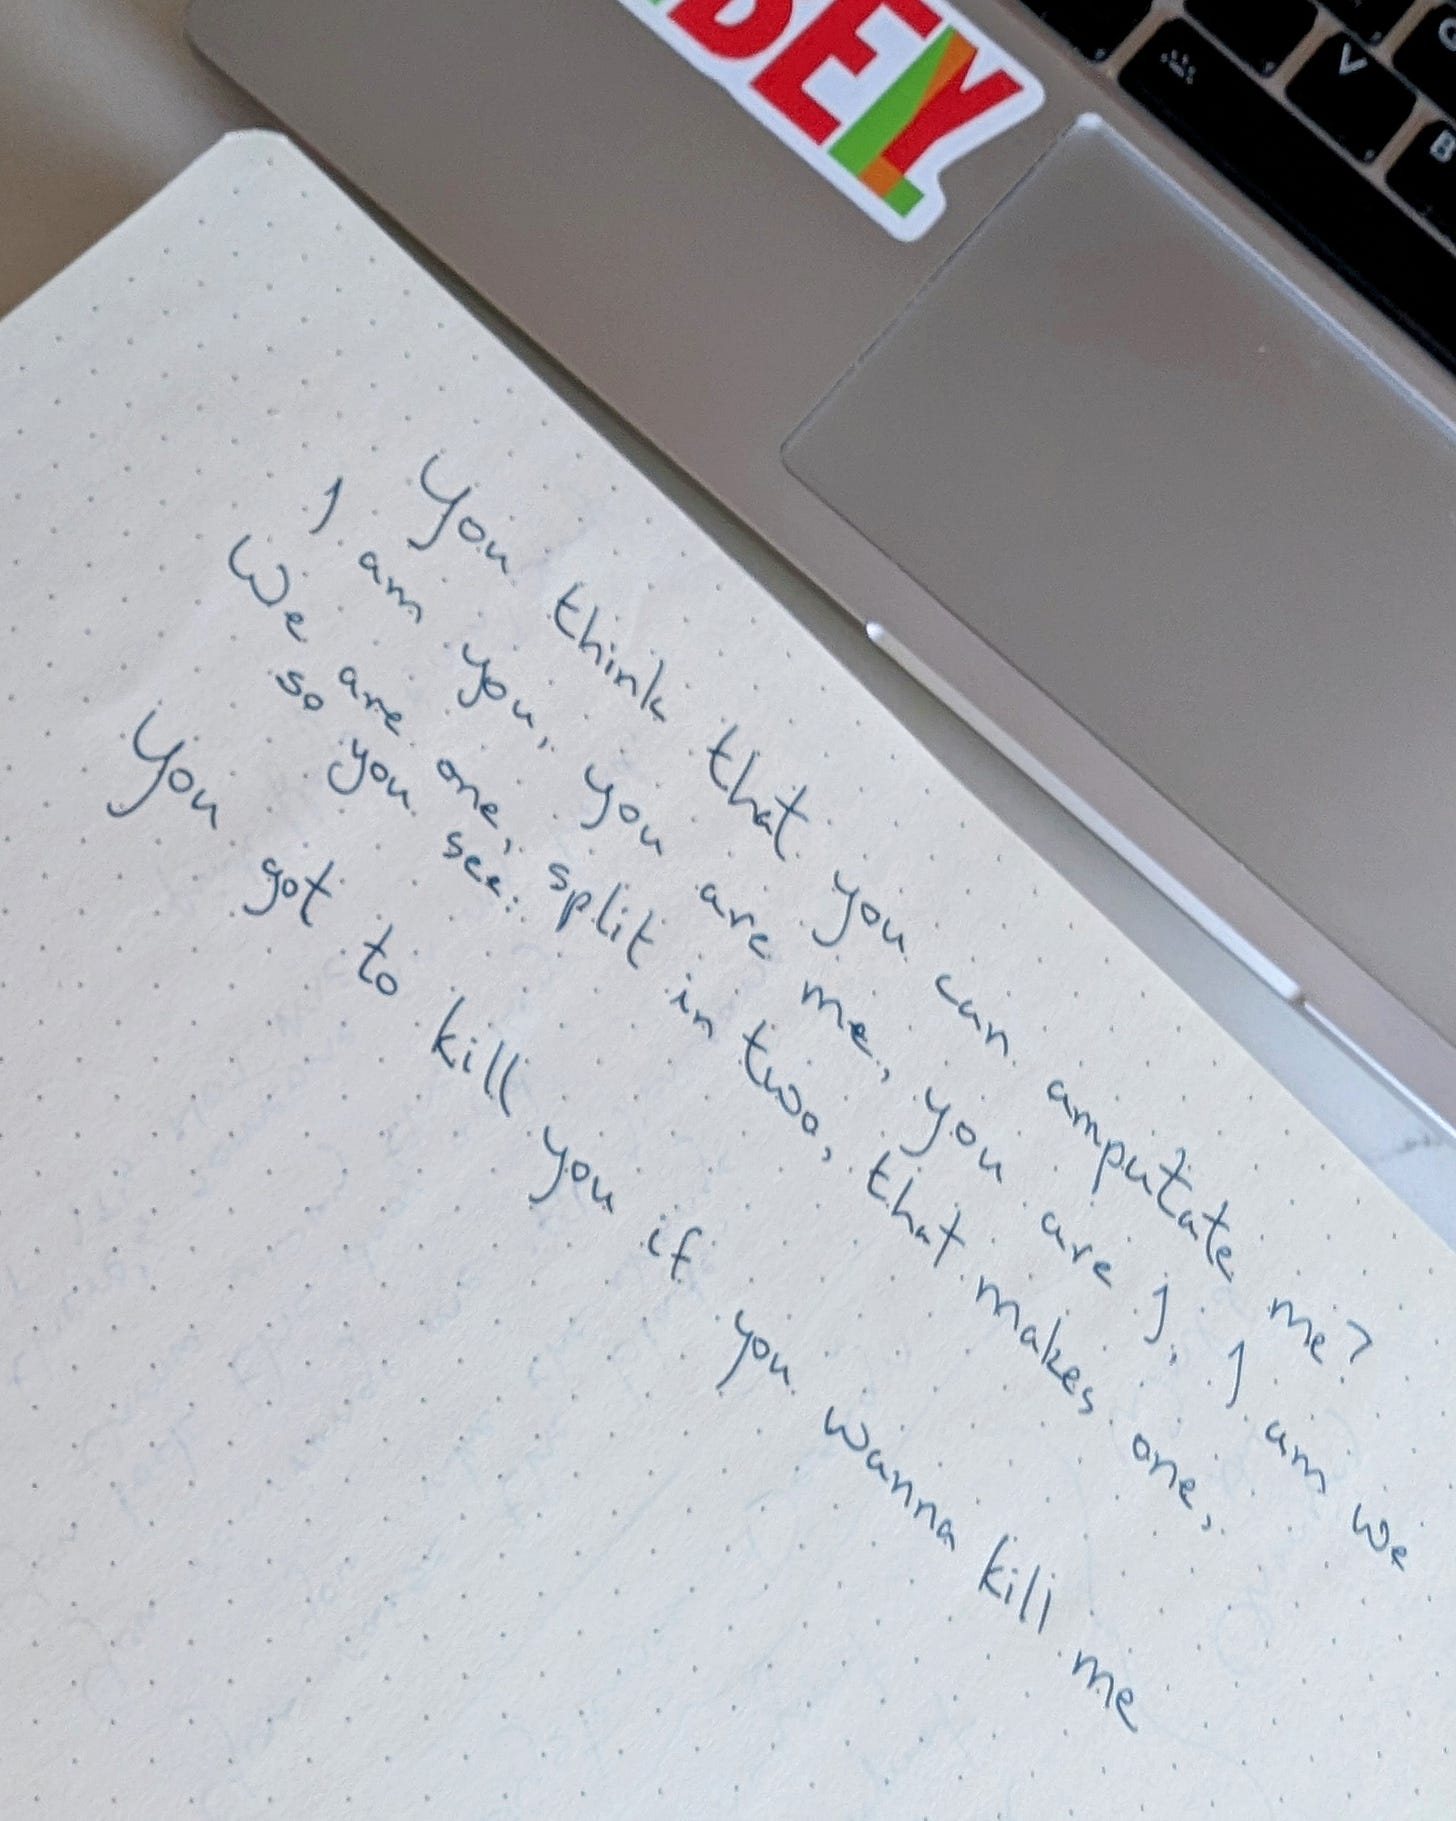 DEY
V
B
You think that you can amputate me?
I am you, you are me, you are I, I am we
We are one, split in two, that makes one,
so you see:
You got to kill you if you wanna kill me